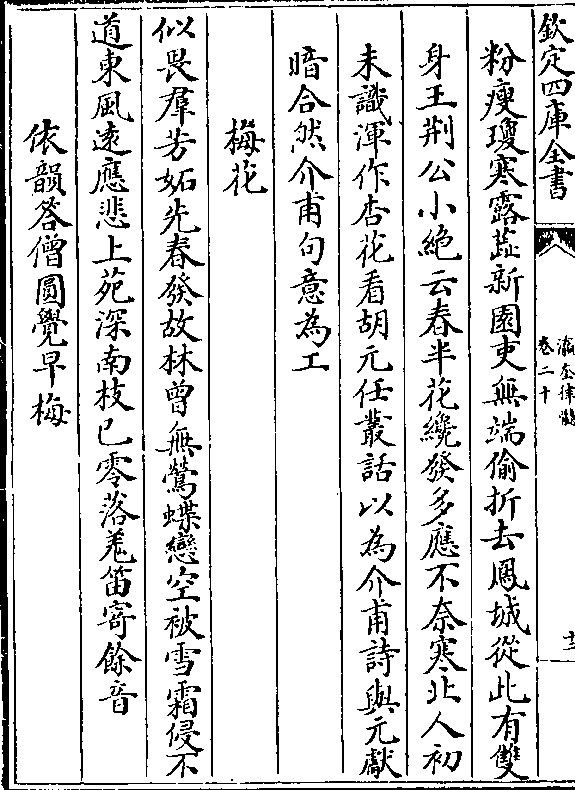 欽定四庫全書
瀛奎律髓
卷二十
十三
粉瘦瓊寒露蕋新園吏無端偷折去鳳城從此有雙
身王荆公小絶云春半花纔發多應不奈寒北人初
未識渾作杏花看胡元任叢話以為介甫詩與元獻
暗合然介甫句意為工
梅花
似畏羣芳妬先春發故林曾無鶯蝶戀空被雪霜侵不
道東風遠應悲上苑深南枝已零落羌笛寄餘音
依韻答僧圓覺早梅